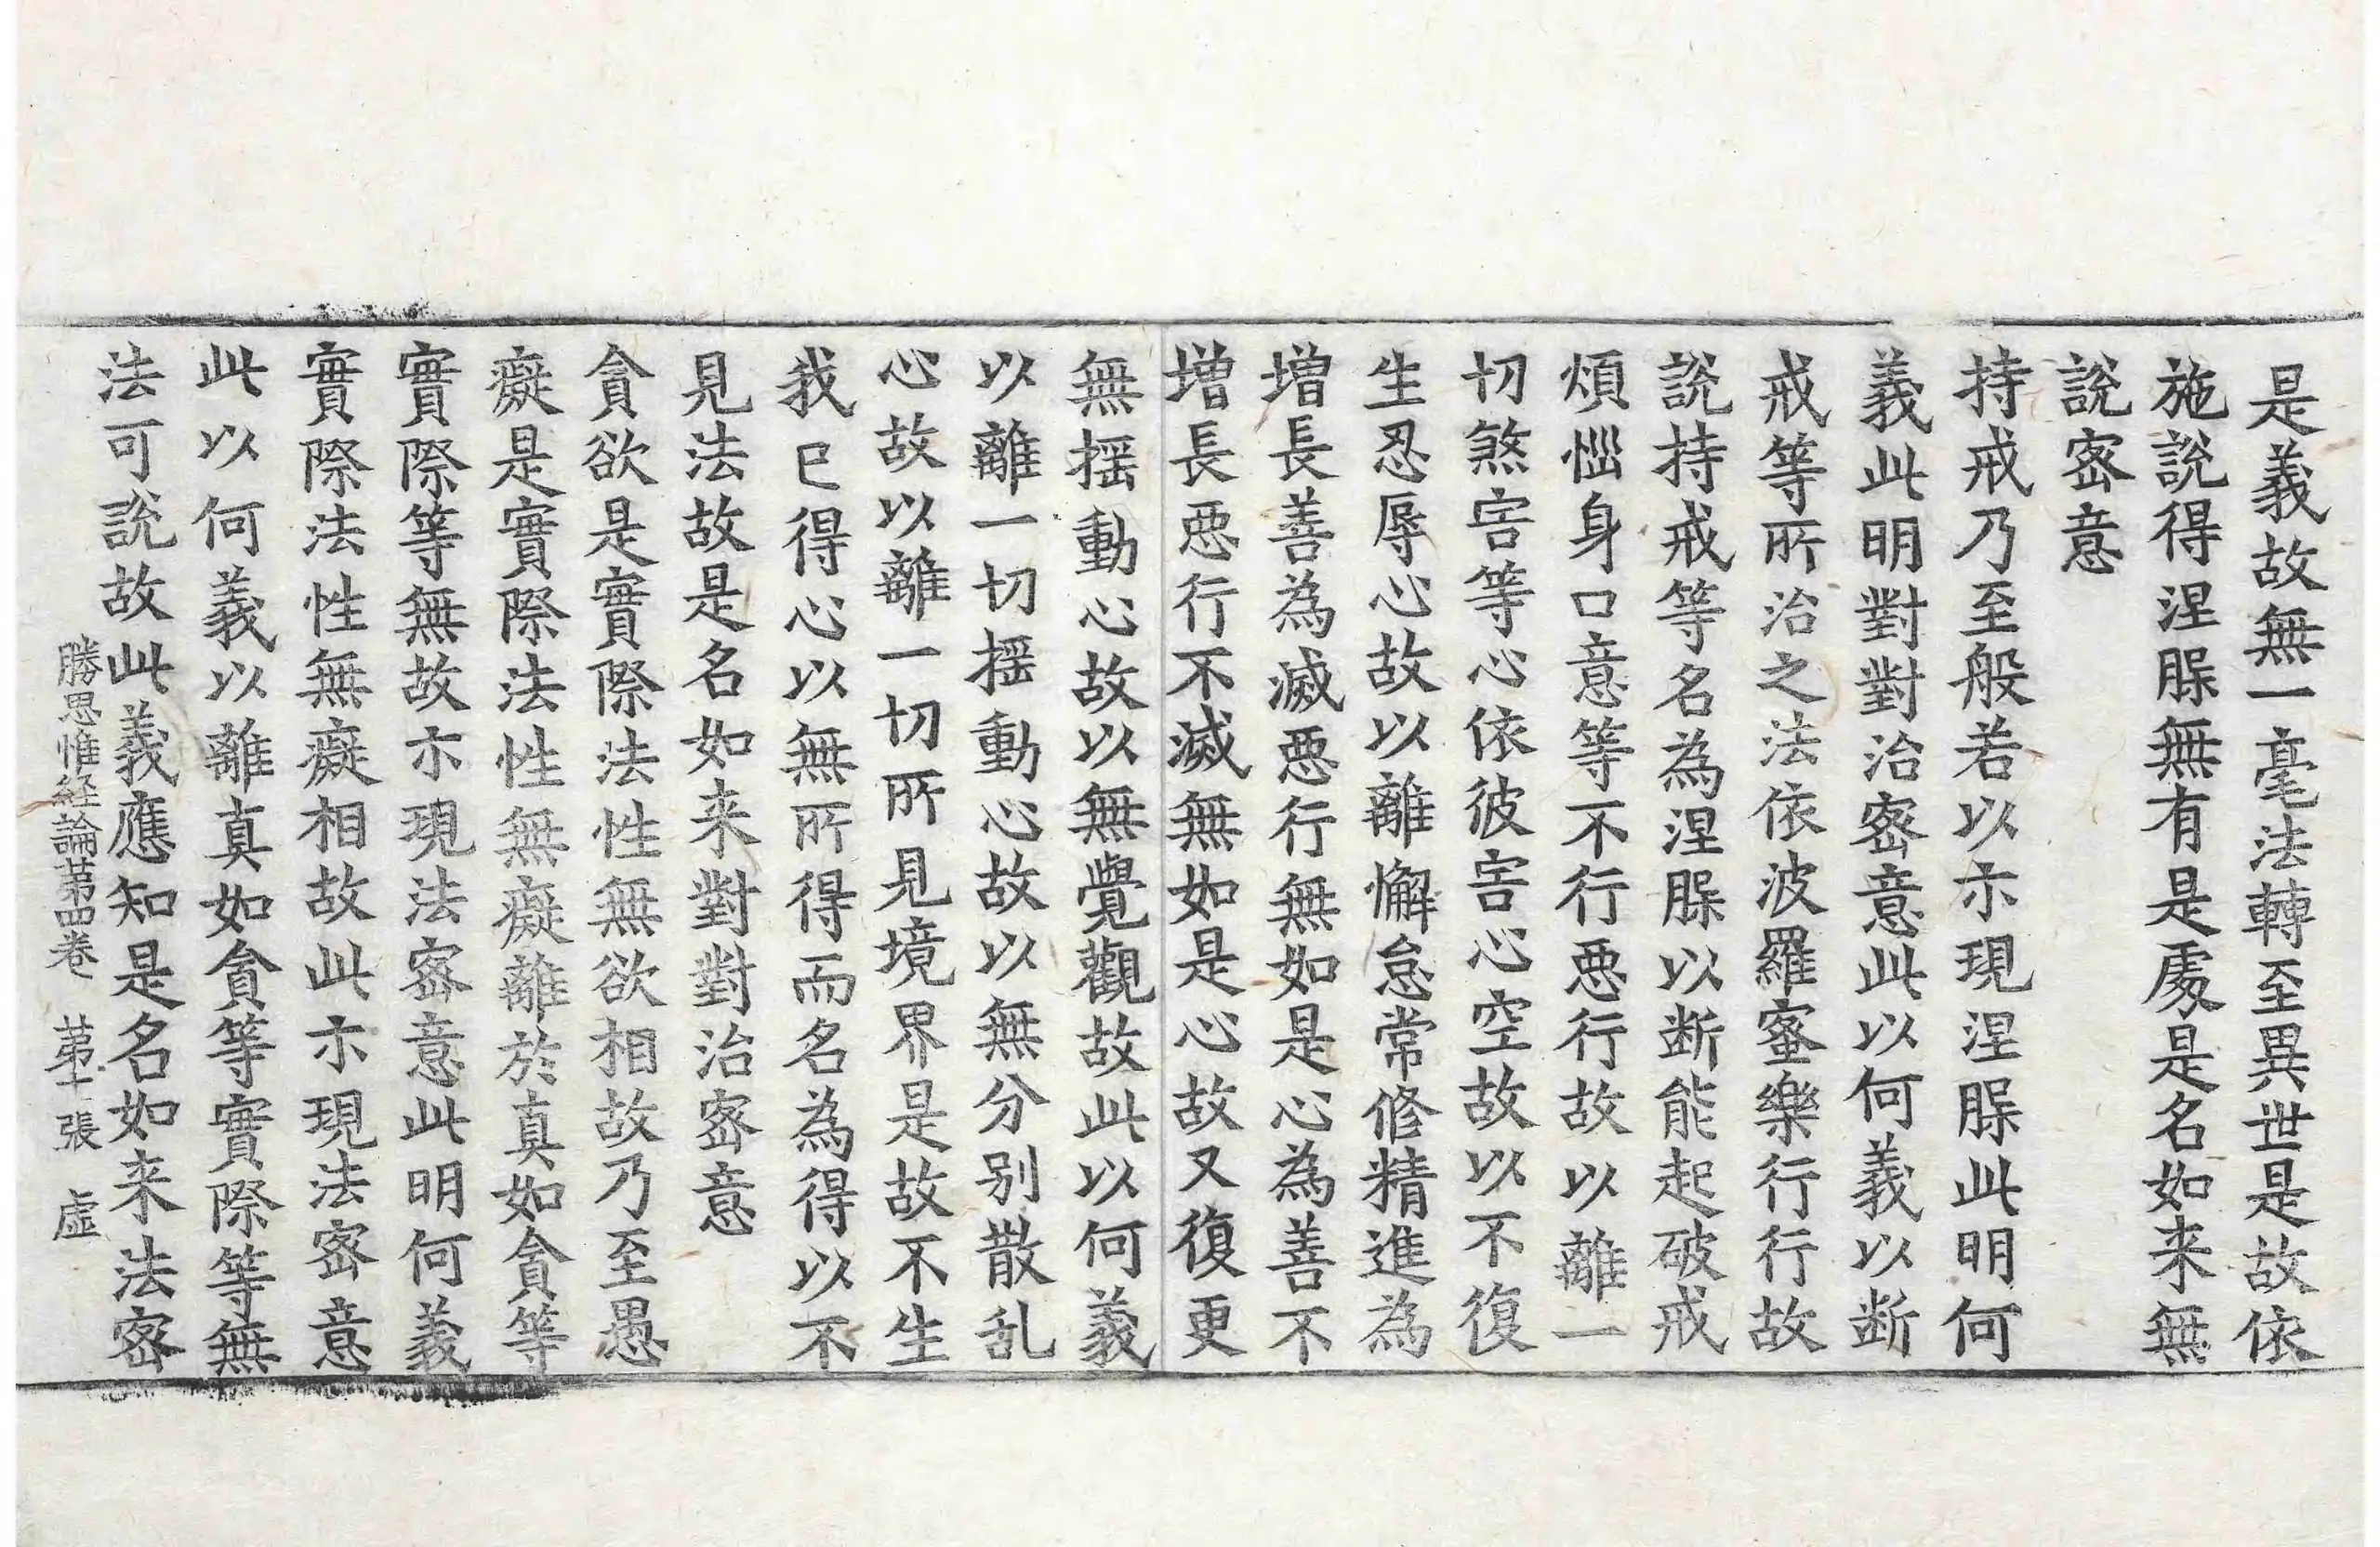 是義故無一毫法轉至異世是故依
施說得涅脲無有是處是名如来無
說宻意
持戒乃至般若以示現涅脲此明何
義此明對對治宻意此以何義以断
戒等所治之法依波羅蜜樂行行故
說持戒等名為涅脲以断能起破戒
煩惱身口意等不行悪行故以離一
切煞害等心依彼害心空故以不復
生忍辱心故以離懈怠常修精進為
增長善為滅悪行無如是心為善不
增長悪行不滅無如是心故又復更
無揺動心故以無覺觀故此以何義
以離一切揺動心故以無分别散乱
心故以離一切所見境界是故不生
我已得心以無所得而名為得以不
見法故是名如来對對治宻意
貪欲是實際法性無欲相故乃至愚
癡是實際法性無癡離於真如貪等
實際等無故示現法宻意此明何義
實際法性無癡相故此示現法宻意
此以何義以離真如貪等實際等無
法可說故此義應知是名如来法宻
勝思惟経論苐四卷　苐十張　虛